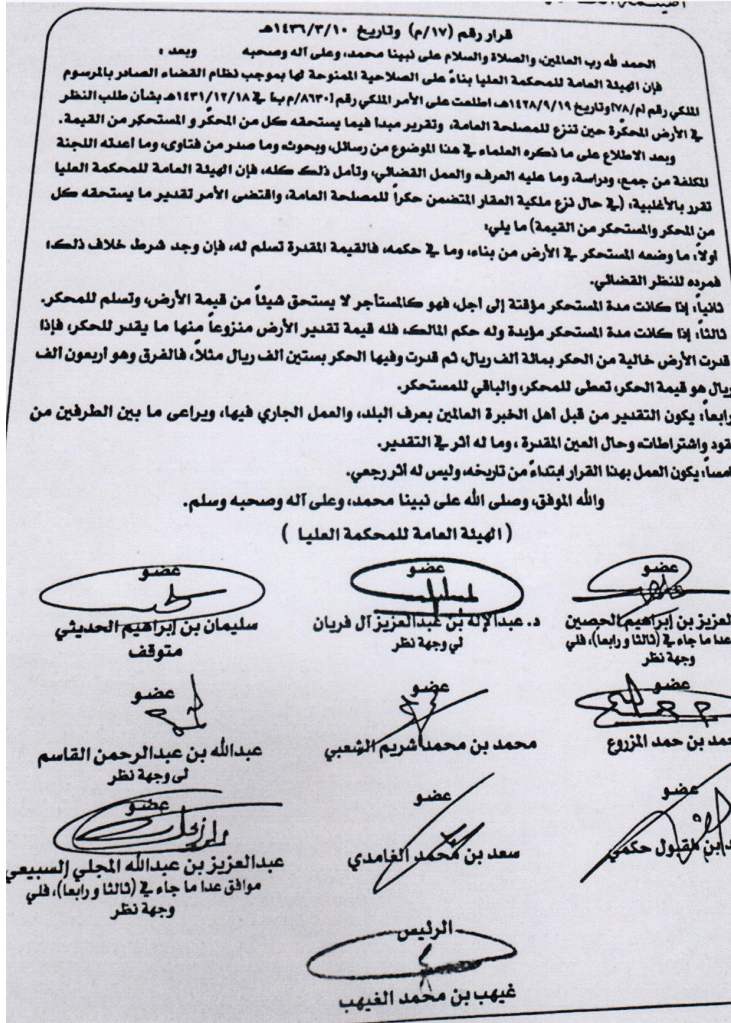 قرار رقم (١٧/م) وتاريخ ١٤٣٦/٣/١٠هـ
الحمد لله رب العالمين، والصلاة والسلام على نبينا محمد، وعلى آله وصحبه وبعد :
فإن الهيئة العامة للمحكمة العليا بناءً على الصلاحية الممنوحة لها بموجب نظام القضاء الصادر بالمرسوم
الملكي رقم [م/٧٨] وتاريخ ١٤٢٨/٩/١٩هـ، اطلعت على الأمر الملكي رقم [٨٦٣٠/م ب] في ١٤٣١/١٢/١٨هـ بشأن طلب النظر
في الأرض المحكّرة حين تنزع للمصلحة العامة، وتقرير مبدا فيما يستحقه كل من المحكّر و المستحكر من القيمة.
وبعد الاطلاع على ما ذكره العلماء في هذا الموضوع من رسائل، وبحوث، وما صدر من فتاوى، وما أعدته اللجنة
المكلفة من جمع، ودراسة، وما عليه العرف، والعمل القضائي، وتأمل ذلك كله، فإن الهيئة العامة للمحكمة العليا
تقرر بالأغلبية، (في حال نزع ملكية العقار المتضمن حكراً للمصلحة العامة، واقتضى الأمر تقدير ما يستحقه كل
من المحكر والمستحكر من القيمة) ما يلي:
أولاً: ما وضعه المستحكر في الأرض من بناء، وما في حكمه، فالقيمة المقدرة تسلم له، فإن وجد شرط خلاف ذلك؛
فمرده للنظر القضائي.
ثانياً: إذا كانت مدة المستحكر مؤقتة إلى أجل، فهو كالمستأجر لا يستحق شيئاً من قيمة الأرض، وتسلم للمحكر.
ثالثاً: إذا كانت مدة المستحكر مؤبدة وله حكم المالك، فله قيمة تقدير الأرض منزوعاً منها ما يقدر للحكر، فإذا
قدرت الأرض خالية من الحكر بمائة ألف ريال، ثم قدرت وفيها الحكر بستين ألف ريال مثلاً، فالفرق وهو أربعون ألف
ريال هو قيمة الحكر، تعطى للمحكر، والباقي للمستحكر.
رابعاً: يكون التقدير من قبل أهل الخبرة العالمين بعرف البلد، والعمل الجاري فيها، ويراعى ما بين الطرفين من
قود واشتراطات، وحال العين المقدرة ، وما له أثر في التقدير.
امساً: يكون العمل بهذا القرار ابتداءً من تاريخه، وليس له أثر رجعي.
والله الموفق، وصلى الله على نبينا محمد، وعلى آله وصحبه وسلم.
( الهيئة العامة للمحكمة العليا )
عضو عضو عضو
لعزيز بن إبراهيم الحصين د. عبدالإله بن عبدالعزيز آل فريان سليمان بن إبراهيم الحديثي
عدا ما جاء في (ثالثا ورابعا)، فلي لي وجهة نظر متوقف
وجهة نظر
عضو عضو عضو
حمد بن حمد المزروع محمد بن محمد شريم الشعبي عبدالله بن عبدالرحمن القاسم
لي وجهة نظر
عضو عضو عضو
بن مقبول حكمي سعد بن محمد الغامدي عبدالعزيز بن عبدالله المجلي السبيعي
موافق عدا ما جاء في (ثالثا ورابعا)، فلي
وجهة نظر
الرئيس
غيهب بن محمد الغيهب